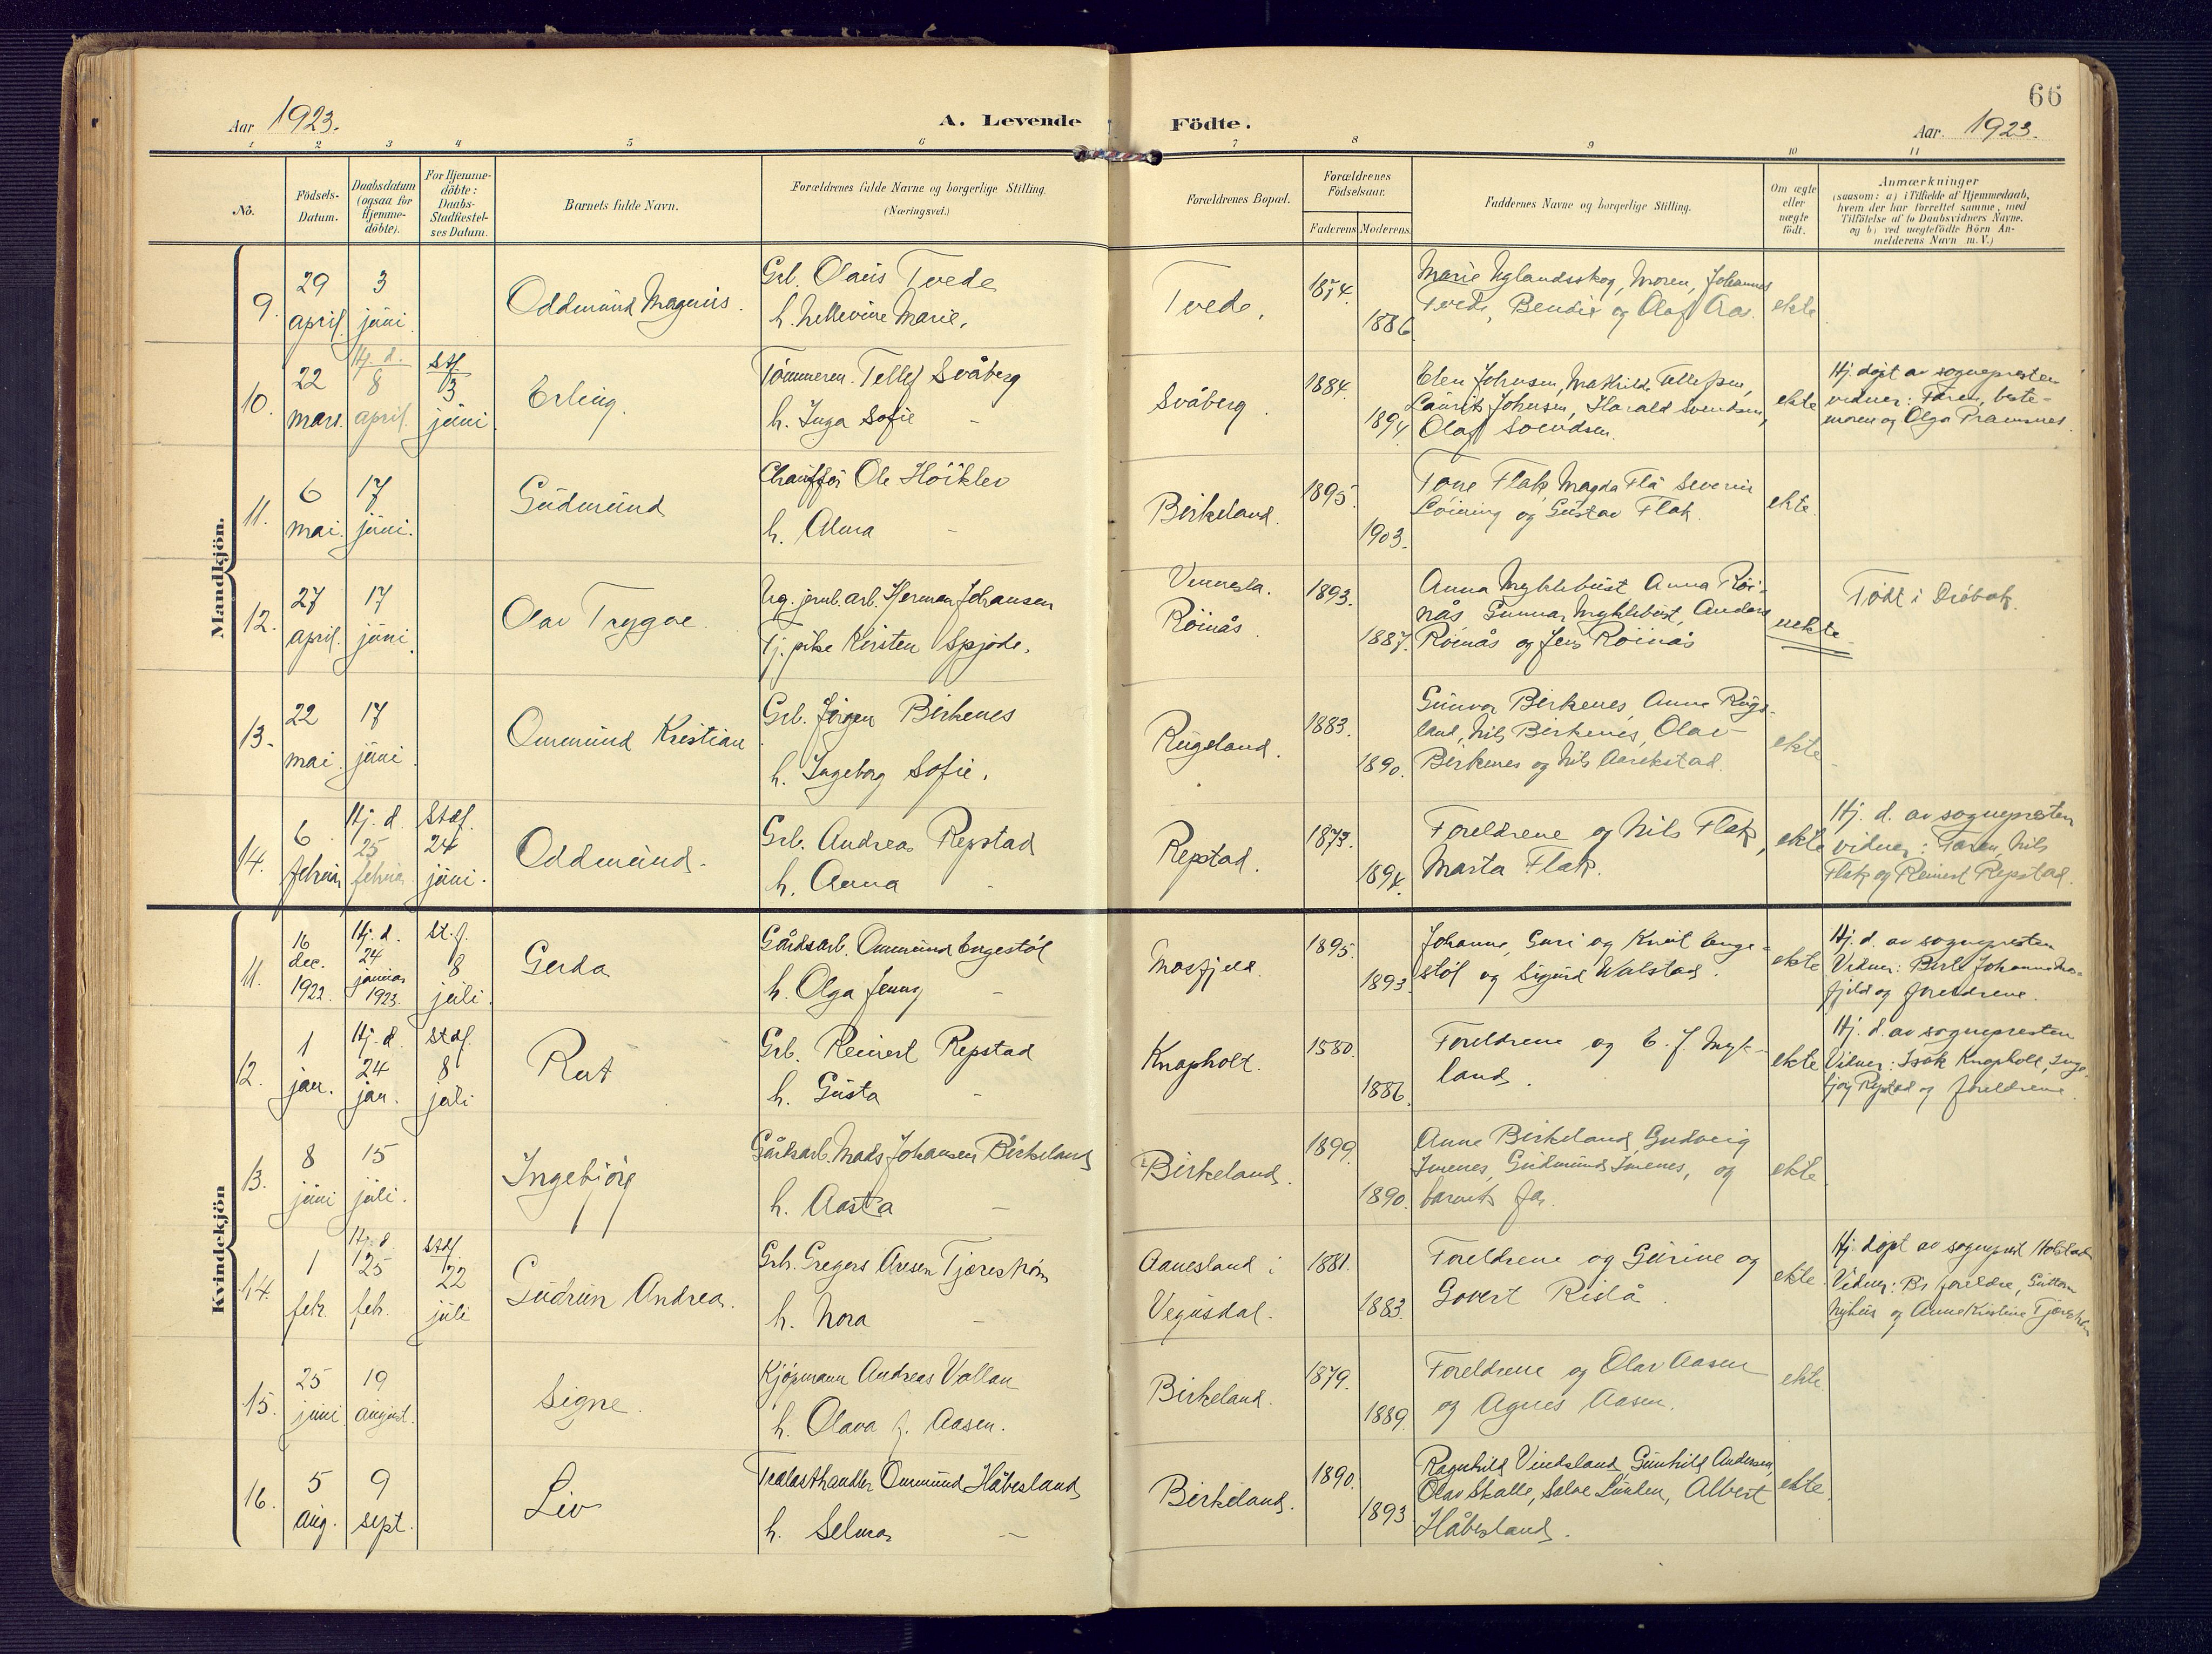 66
Aar 1923.
A. Levende Födte.
Aar. 1923.
1 2 3 4 5 6 7 8 9 10 11
No.
Födsels-
Datum.
Daabsdatum
(ogsaa for
Hjemme-
döbte).
For Hjemme-
döbte:
Daabs-
Stadfæstel-
ses Datum.
Barnets fulde Navn.
Forældrenes fulde Navne og borgerlige Stilling.
(Næringsvei.)
Forældrenes Bopæl.
Forældrenes
Födselsaar.
Faderens Moderens
Faddernes Navne og borgerlige Stilling.
Om ægte
eller
uægte
födt.
Anmærkninger
(saasom: a) i Tilfælde af Hjemmedaab,
hvem der har forrettet samme, med
Tilföielse af to Daabsvidners Navne.
og b) ved uægtefödte Börn An-
melderens Navn m. V.)
Mandkjön.
9.
29
april.
3
juni
Oddmund Magnus.
Grb. Olaus Tvede
h. Nellevine Marie,
Tvede,
1874.
1886
Marie Uglandsskog, Moren, Johannes
Tvede, Bendix og Olaf Aas.
ekte
10.
22
mars.
Hj. d.
8
april.
Stf.
3
juni
Erling.
Tømmerm. Tellef Svåberg
h. Inga Sofie –
Svåberg.
1884.
1894.
Elen Johnsen, Mathilde Tellefsen,
Laurits Johnsen, Harald Svendsen,
Olaf Svendsen.
ekte
Hj. døpt av sognepresten
vidner: Faren, beste-
moren og Olga Pramsnes.
11.
6
mai.
17
juni.
Gudmund
Chauffør Ole Höiklev
h. Alma –
Birkeland.
1895
1903.
Tone Flak, Magda Flå Severin
Løining og Gustav Flak.
ekte.
12.
27
april.
17
juni.
Olav Trygve.
Ug. jernb. arb. Herman Johansen
Tj. pike Kirsten Spjode.
Vennesla.
Röinås.
1893.
1887.
Anna Myklebust Anna Röi-
nås, Gunnar Myklebust, Anders
Röinås og Jens Röinås
uekte
Födt i Dröbak.
13.
22
mai.
17
juni
Ommund Kristian
Grb. Jörgen Birkenes
h. Ingeborg Sofie.
Rugsland.
1883.
1890.
Gunvor Birkenes, Anne Rugs-
land, Nils Birkenes, Olav
Birkenes og Nils Aarikstad.
ekte
14.
6
februar
Hj. d.
25
februar
Stdf.
24
juni.
Oddmund.
Grb. Andreas Repstad
h. Anna –
Repstad.
1873.
1894.
Foreldrene og Nils Flak,
Marta Flak.
ekte
Hj. d. av sognepresten
vidner: Faren, Nils
Flak og Reinert Repstad.
Kvindekjön
11.
16
dec.
1922.
Hj. d.
24
januar
1923.
St. f.
8
juli.
Gerda
Gårdsarb. Ommund Engestöl
h. Olga Jenny –
Mosfjeld.
1895.
1893.
Johanne, Guri og Knut Enge-
stöl og Sigurd Walstad.
ekte
Hj. d. av sognepresten
Vidner: Berte Johanne Mos-
fjeld og foreldrene.
12.
1
jan.
Hj. d.
24
jan.
Stdf.
8
juli
Rut
Grb. Reinert Repstad
h. Gusta –
Knapholt.
1880.
1886.
Foreldrene og E. J. Myk-
land.
ekte
Hj. d. av sognepresten
Vidner: Isak Knapholt, Inge-
bjørg Repstad og foreldrene.
13.
8
juni
15
juli.
Ingebjörg
Gårdsarb. Mads Johansen Birkeland
h. Aasta –
Birkeland.
1899.
1890.
Anne Birkeland, Gudveig
Imenes, Gudmund Imenes, og
barnets far.
ekte
14.
1
feb.
Hj. d.
25
feb.
Stdf.
22
juli
Gudrun Andrea.
Grb. Gregers Aresen Tjæreshöm
h. Nora –
Aanesland i
Vegusdal.
1881.
1883.
Foreldrene og Gurine og
Govert Rislå.
ekte.
Hj. døpt av sogneprest Holstad
Vidner: B's foreldre, Guttorm
Nyhus og Anne Kristine Tjæreshöm
15.
25
juni.
19
august.
Signe.
Kjöpmann Andreas Vollan
h. Olava f. Aasen.
Birkeland.
1879.
1889.
Foreldrene og Olav Aasen
og Agnes Aasen.
ekte.
16.
5
aug.
9
sept.
Liv
Trelasthandler Ommund Håbesland
h. Selma –
Birkeland.
1890.
1893
Ragnhild Vindsland, Gunhild Andersen,
Olav Skalle, Salve Lunden, Albert
Håbesland.
ekte.